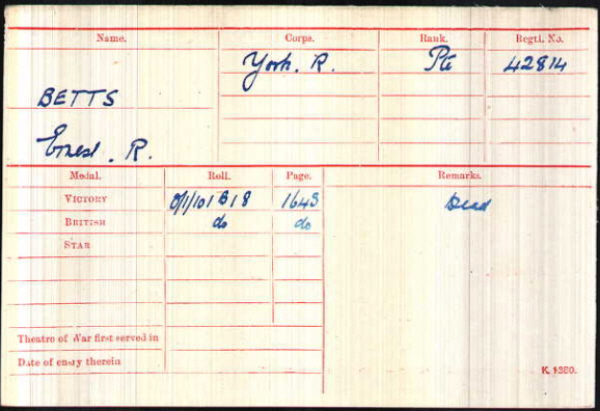 Name. Corps. Rank. Regtl. No.
York. R. Pte 42814
BETTS
Ernest. R.
Medal. Roll. Page. Remarks.
VICTORY O/1/101 B18 1643 Dead
BRITISH do do
STAR
Theatre of War first served in
Date of entry therein
K. 1380.